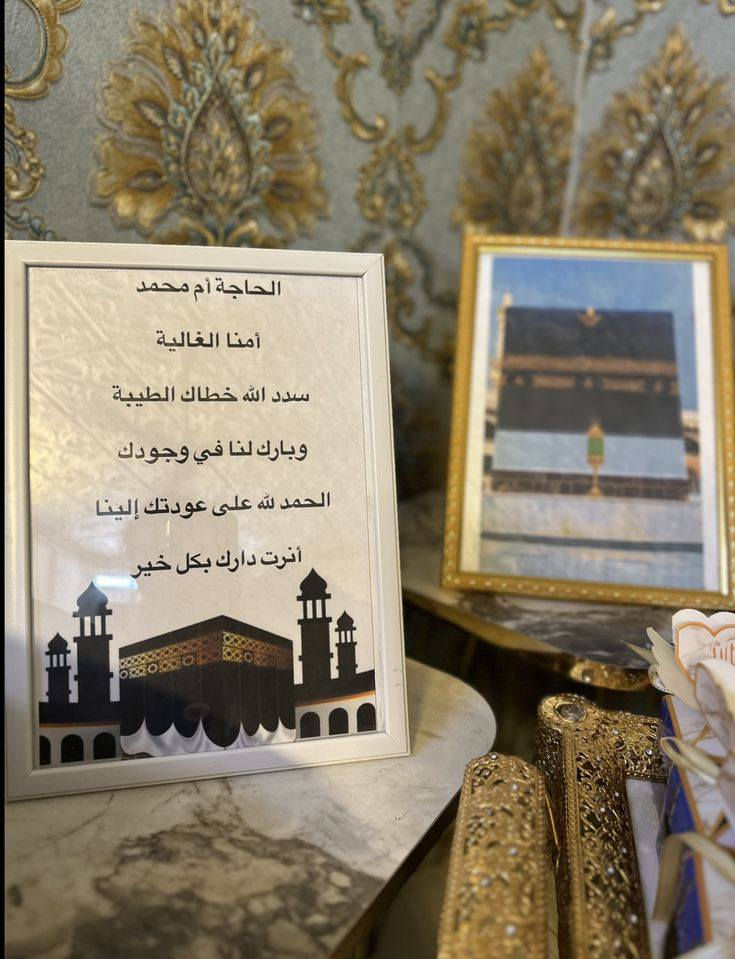 الحاجة أم محمد
أمنا الغالية
سدد الله خطاك الطيبة
وبارك لنا في وجودك
الحمد لله على عودتك إلينا
أنرت دارك بكل خير